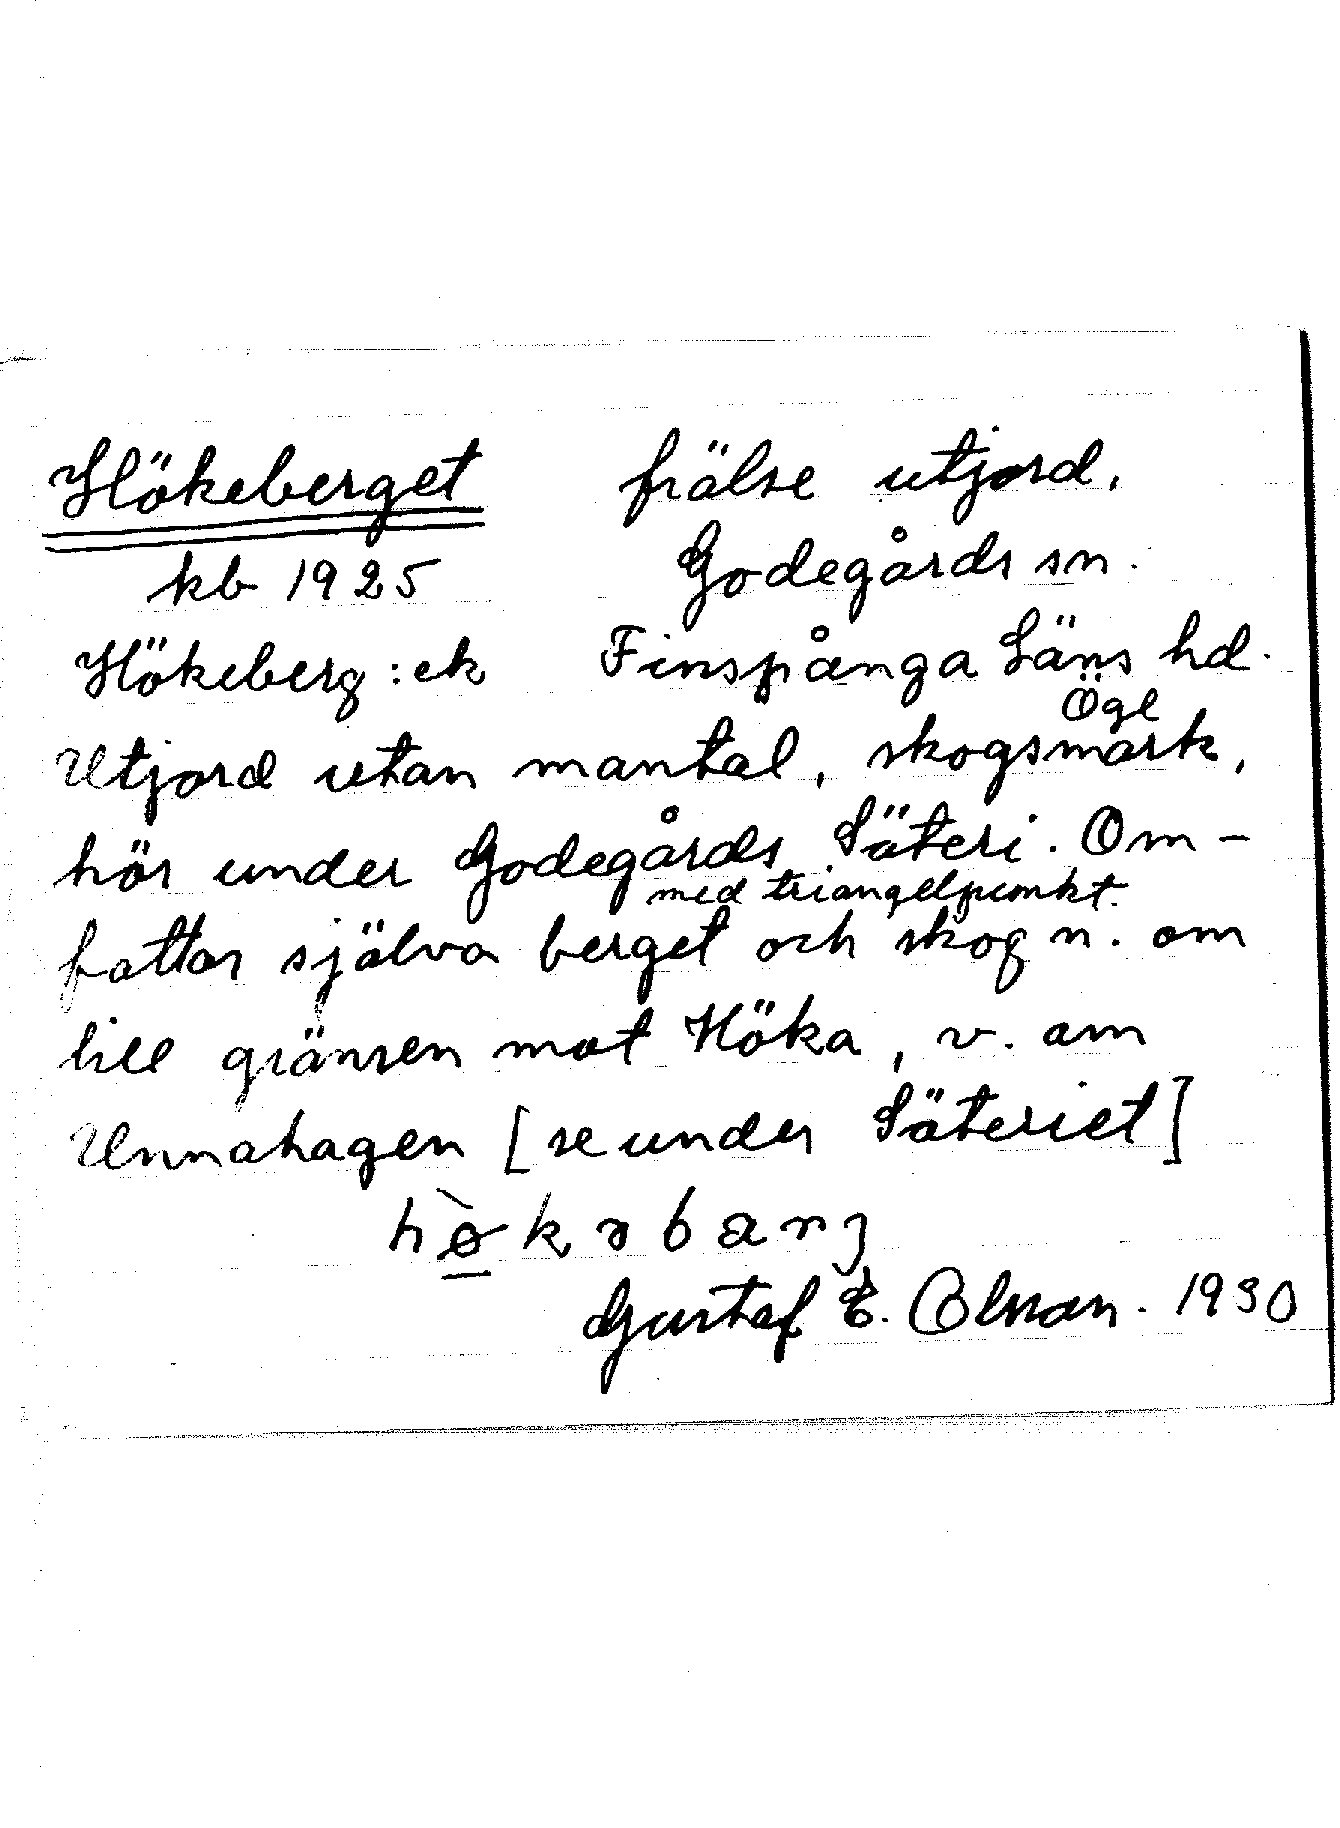 Hökeberget frälse utjord,
kb 1925 Godegårds sn.
Hökeberg : ek Finspånga Läns hd.
Ögl
Utjord utan mantal, skogsmark,
hör under Godegårds Säteri. Om-
med triangelpunkt.
fattar själva berget och skog n. om
till gränsen mot Höka, v. om
Unnahagen [se under Säteriet]
Gustaf E. Olson. 1930